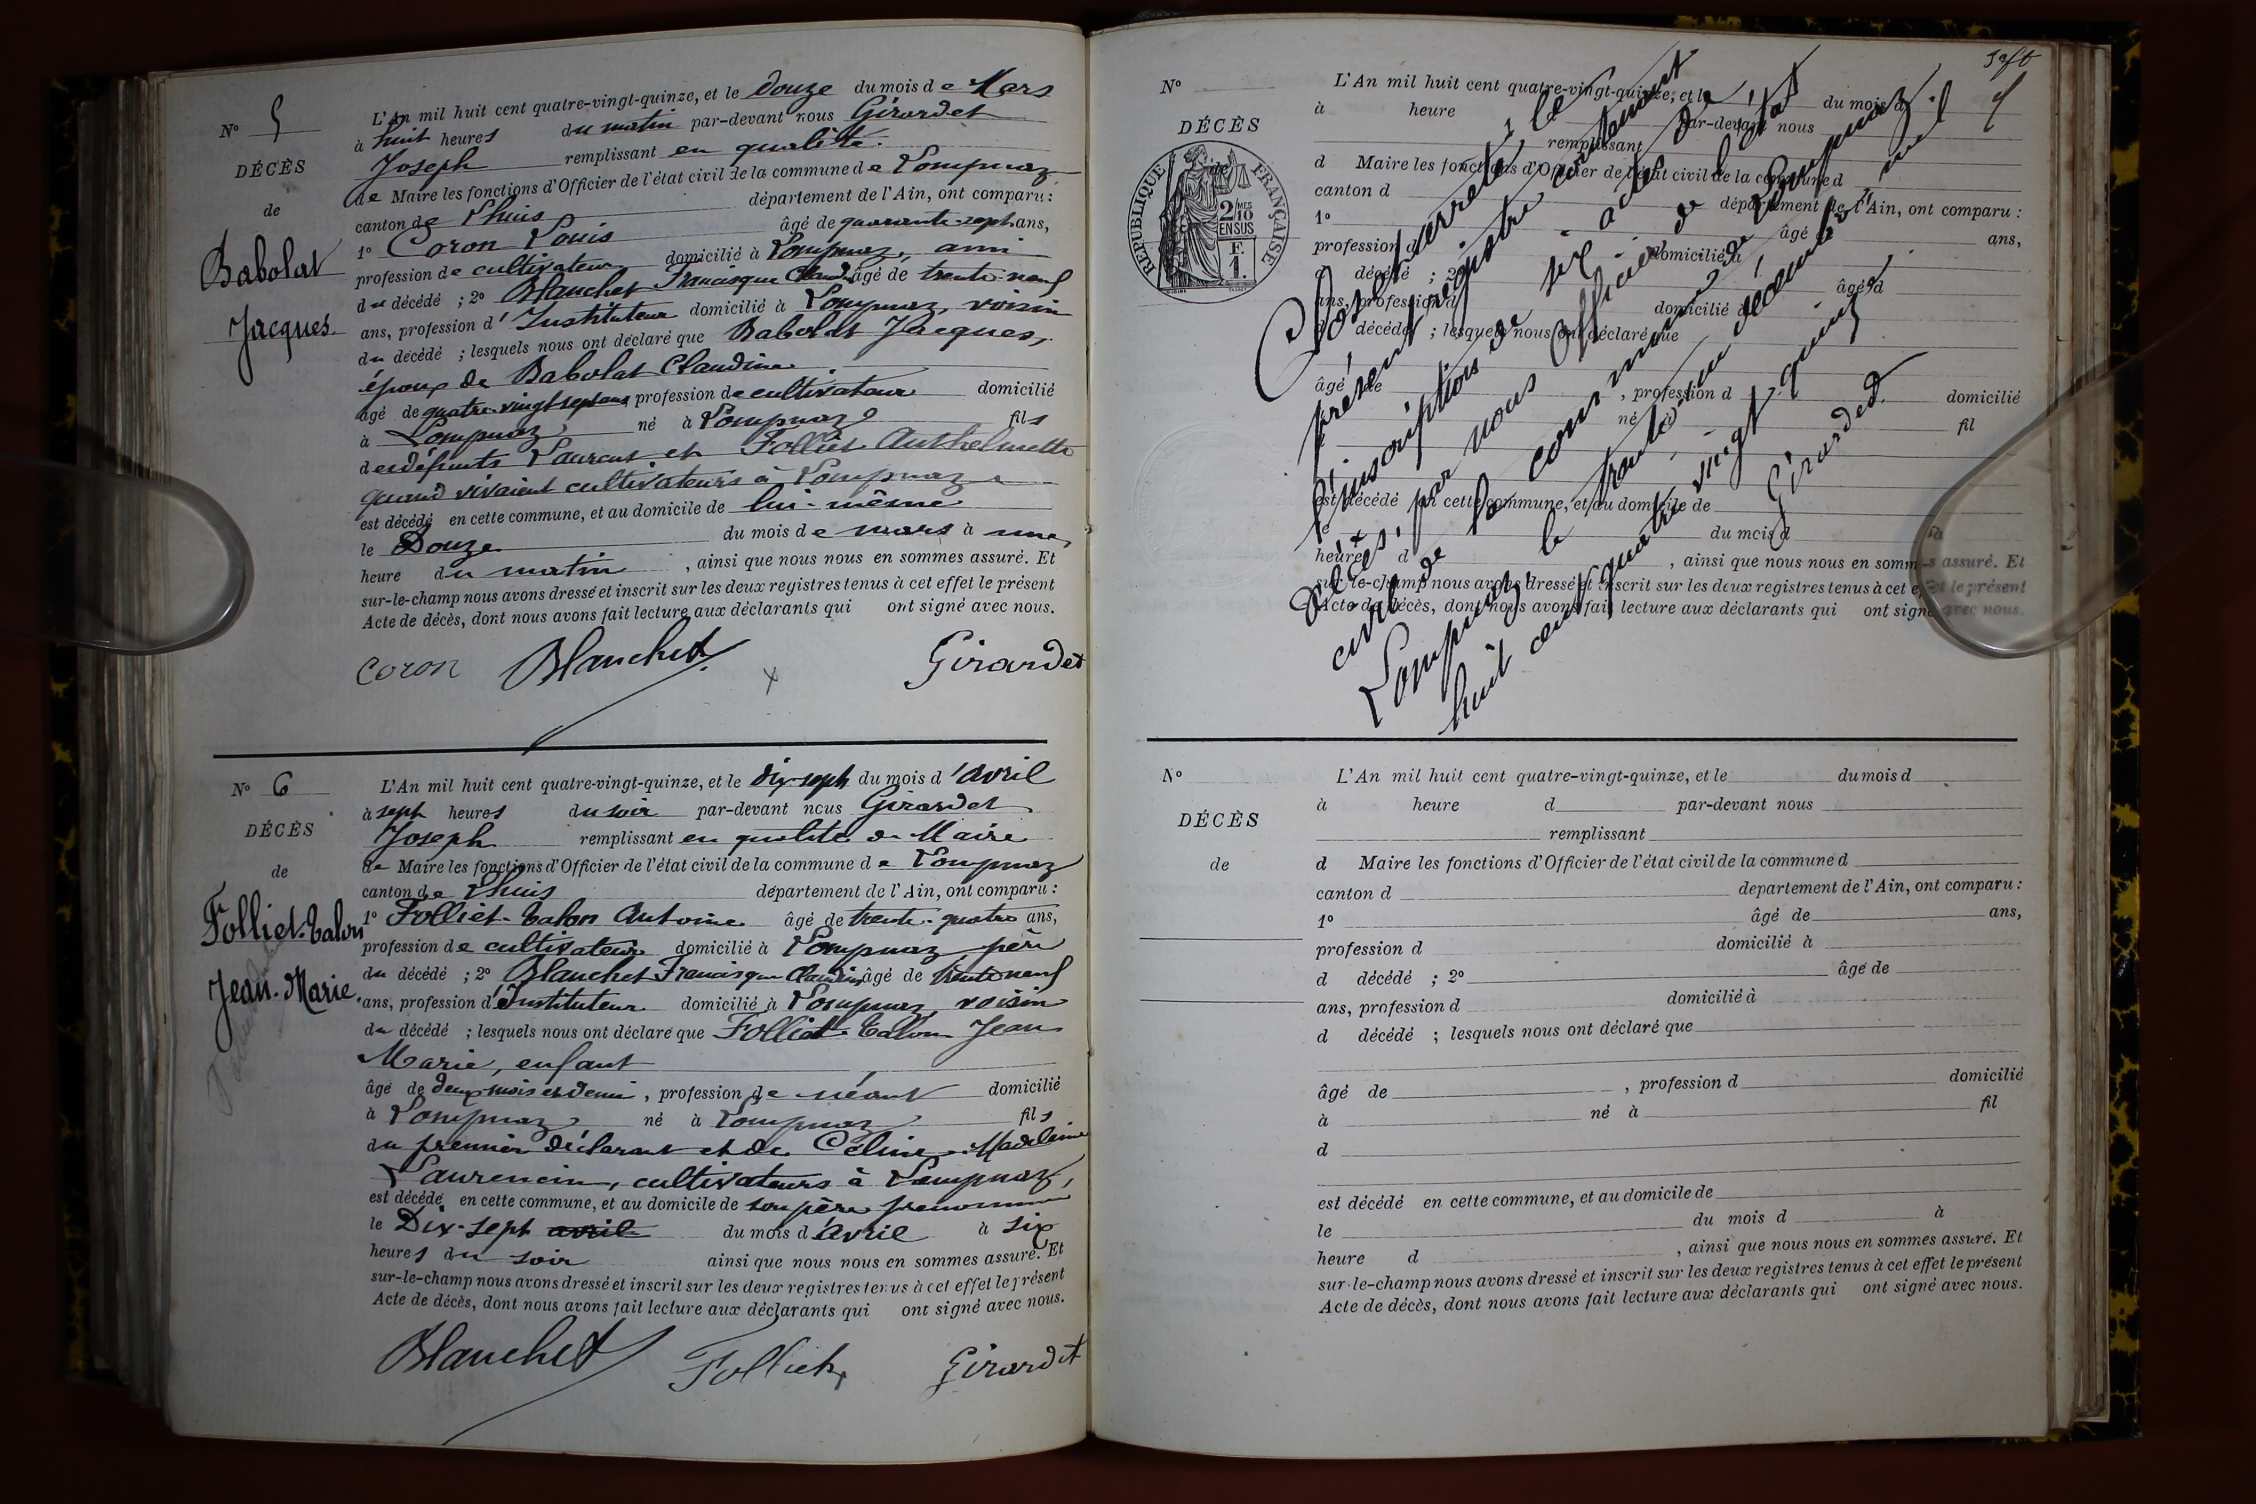 N° 5
DÉCÈS
de
Babolat
Jacques
L'An mil huit cent quatre-vingt-quinze, et le douze du mois de Mars
à huit heures du matin par-devant nous Girardet
Joseph remplissant en qualité
de Maire les fonctions d'Officier de l'état civil de la commune de Lompnaz
canton de Lhuis département de l'Ain, ont comparu :
1° Coron Louis âgé de quarante-sept ans,
profession de cultivateur domicilié à Lompnaz, ami
du décédé ; 2° Blanchet Francisque Claudin âgé de trente-neuf
ans, profession d'Instituteur domicilié à Lompnaz, voisin
du décédé ; lesquels nous ont déclaré que Babolat Jacques,
époux de Babolat Claudine
âgé de quatre-vingt-sept ans profession de cultivateur domicilié
à Lompnaz né à Lompnaz fils
des défunts Laurent et Folliet Anthelmette
quand vivaient cultivateurs à Lompnaz
est décédé en cette commune, et au domicile de lui-même
le Douze du mois de mars à une
heure du matin, ainsi que nous nous en sommes assuré. Et
sur-le-champ nous avons dressé et inscrit sur les deux registres tenus à cet effet le présent
Acte de décès, dont nous avons fait lecture aux déclarants qui ont signé avec nous.
Coron Blanchet Girardet
N° 6
DÉCÈS
de
Folliet-Talon
Jean-Marie
L'An mil huit cent quatre-vingt-quinze, et le dix-sept du mois d'avril
à sept heures du soir par-devant nous Girardet
Joseph remplissant en qualité de Maire
de Maire les fonctions d'Officier de l'état civil de la commune de Lompnaz
canton de Lhuis département de l'Ain, ont comparu :
1° Folliet-Talon Antoine âgé de trente-quatre ans,
profession de cultivateur domicilié à Lompnaz père
du décédé ; 2° Blanchet Francisque Claudin âgé de trente neuf
ans, profession d'Instituteur domicilié à Lompnaz, voisin
du décédé ; lesquels nous ont déclaré que Folliet-Talon Jean
Marie, enfant
âgé de deux mois et demi, profession de néant domicilié
à Lompnaz né à Lompnaz fils
du premier déclarant et de Céline Madeleine
Laurencin, cultivateurs à Lompnaz,
est décédé en cette commune, et au domicile de son père prénommé
le Dix-sept avril du mois d'avril à six
heures du soir ainsi que nous nous en sommes assuré. Et
sur-le-champ nous avons dressé et inscrit sur les deux registres tenus à cet effet le présent
Acte de décès, dont nous avons fait lecture aux déclarants qui ont signé avec nous.
Blanchet Folliet Girardet
N°
DÉCÈS
de
RÉPUBLIQUE FRANÇAISE
2/10 MES
EN SUS
F.
1.
L'An mil huit cent quatre-vingt-quinze, et le du mois d
à heure par-devant nous
remplissant
d Maire les fonctions d'Officier de l'état civil de la commune d
canton d département de l'Ain, ont comparu :
1° âgé ans,
profession d domicilié à
d décédé ; 2° âgé d
ans, profession d domicilié à
décédé ; lesquels nous ont déclaré que
âgé de , profession d domicilié
né à fil
est décédé en cette commune, et au domicile de
le du mois d à
heure d , ainsi que nous nous en sommes assuré. Et
sur-le-champ nous avons dressé et inscrit sur les deux registres tenus à cet effet le présent
Acte de décès, dont nous avons fait lecture aux déclarants qui ont signé avec nous.
Clos et arrêté, le
présent registre contenant
l'inscription de six actes de
décès, par nous Officier de l'état
civil de la commune de Lompnaz
Lompnaz, le trente-un décembre mil
huit cent quatre-vingt-quinze
Girardet
N°
DÉCÈS
de
L'An mil huit cent quatre-vingt-quinze, et le du mois d
à heure d par-devant nous
remplissant
d Maire les fonctions d'Officier de l'état civil de la commune d
canton d département de l'Ain, ont comparu :
1° âgé de ans,
profession d domicilié à
d décédé ; 2° âgé de
ans, profession d domicilié à
d décédé ; lesquels nous ont déclaré que
âgé de , profession d domicilié
à né à fil
d
est décédé en cette commune, et au domicile de
le du mois d à
heure d , ainsi que nous nous en sommes assuré. Et
sur-le-champ nous avons dressé et inscrit sur les deux registres tenus à cet effet le présent
Acte de décès, dont nous avons fait lecture aux déclarants qui ont signé avec nous.